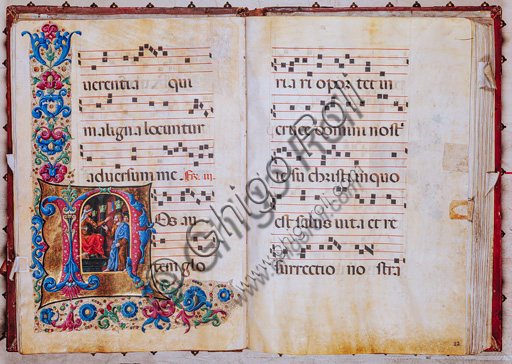 uerentia qui
maligna locuntur
aduersum me. Fer. iii.
Nos au
tem glo
ria ri opor tet in
cruce domini nost
ri iesu christi in quo
est salus uita et re
surrectio no stra
22
©Ghigo Roli
www.ghigoroli.com